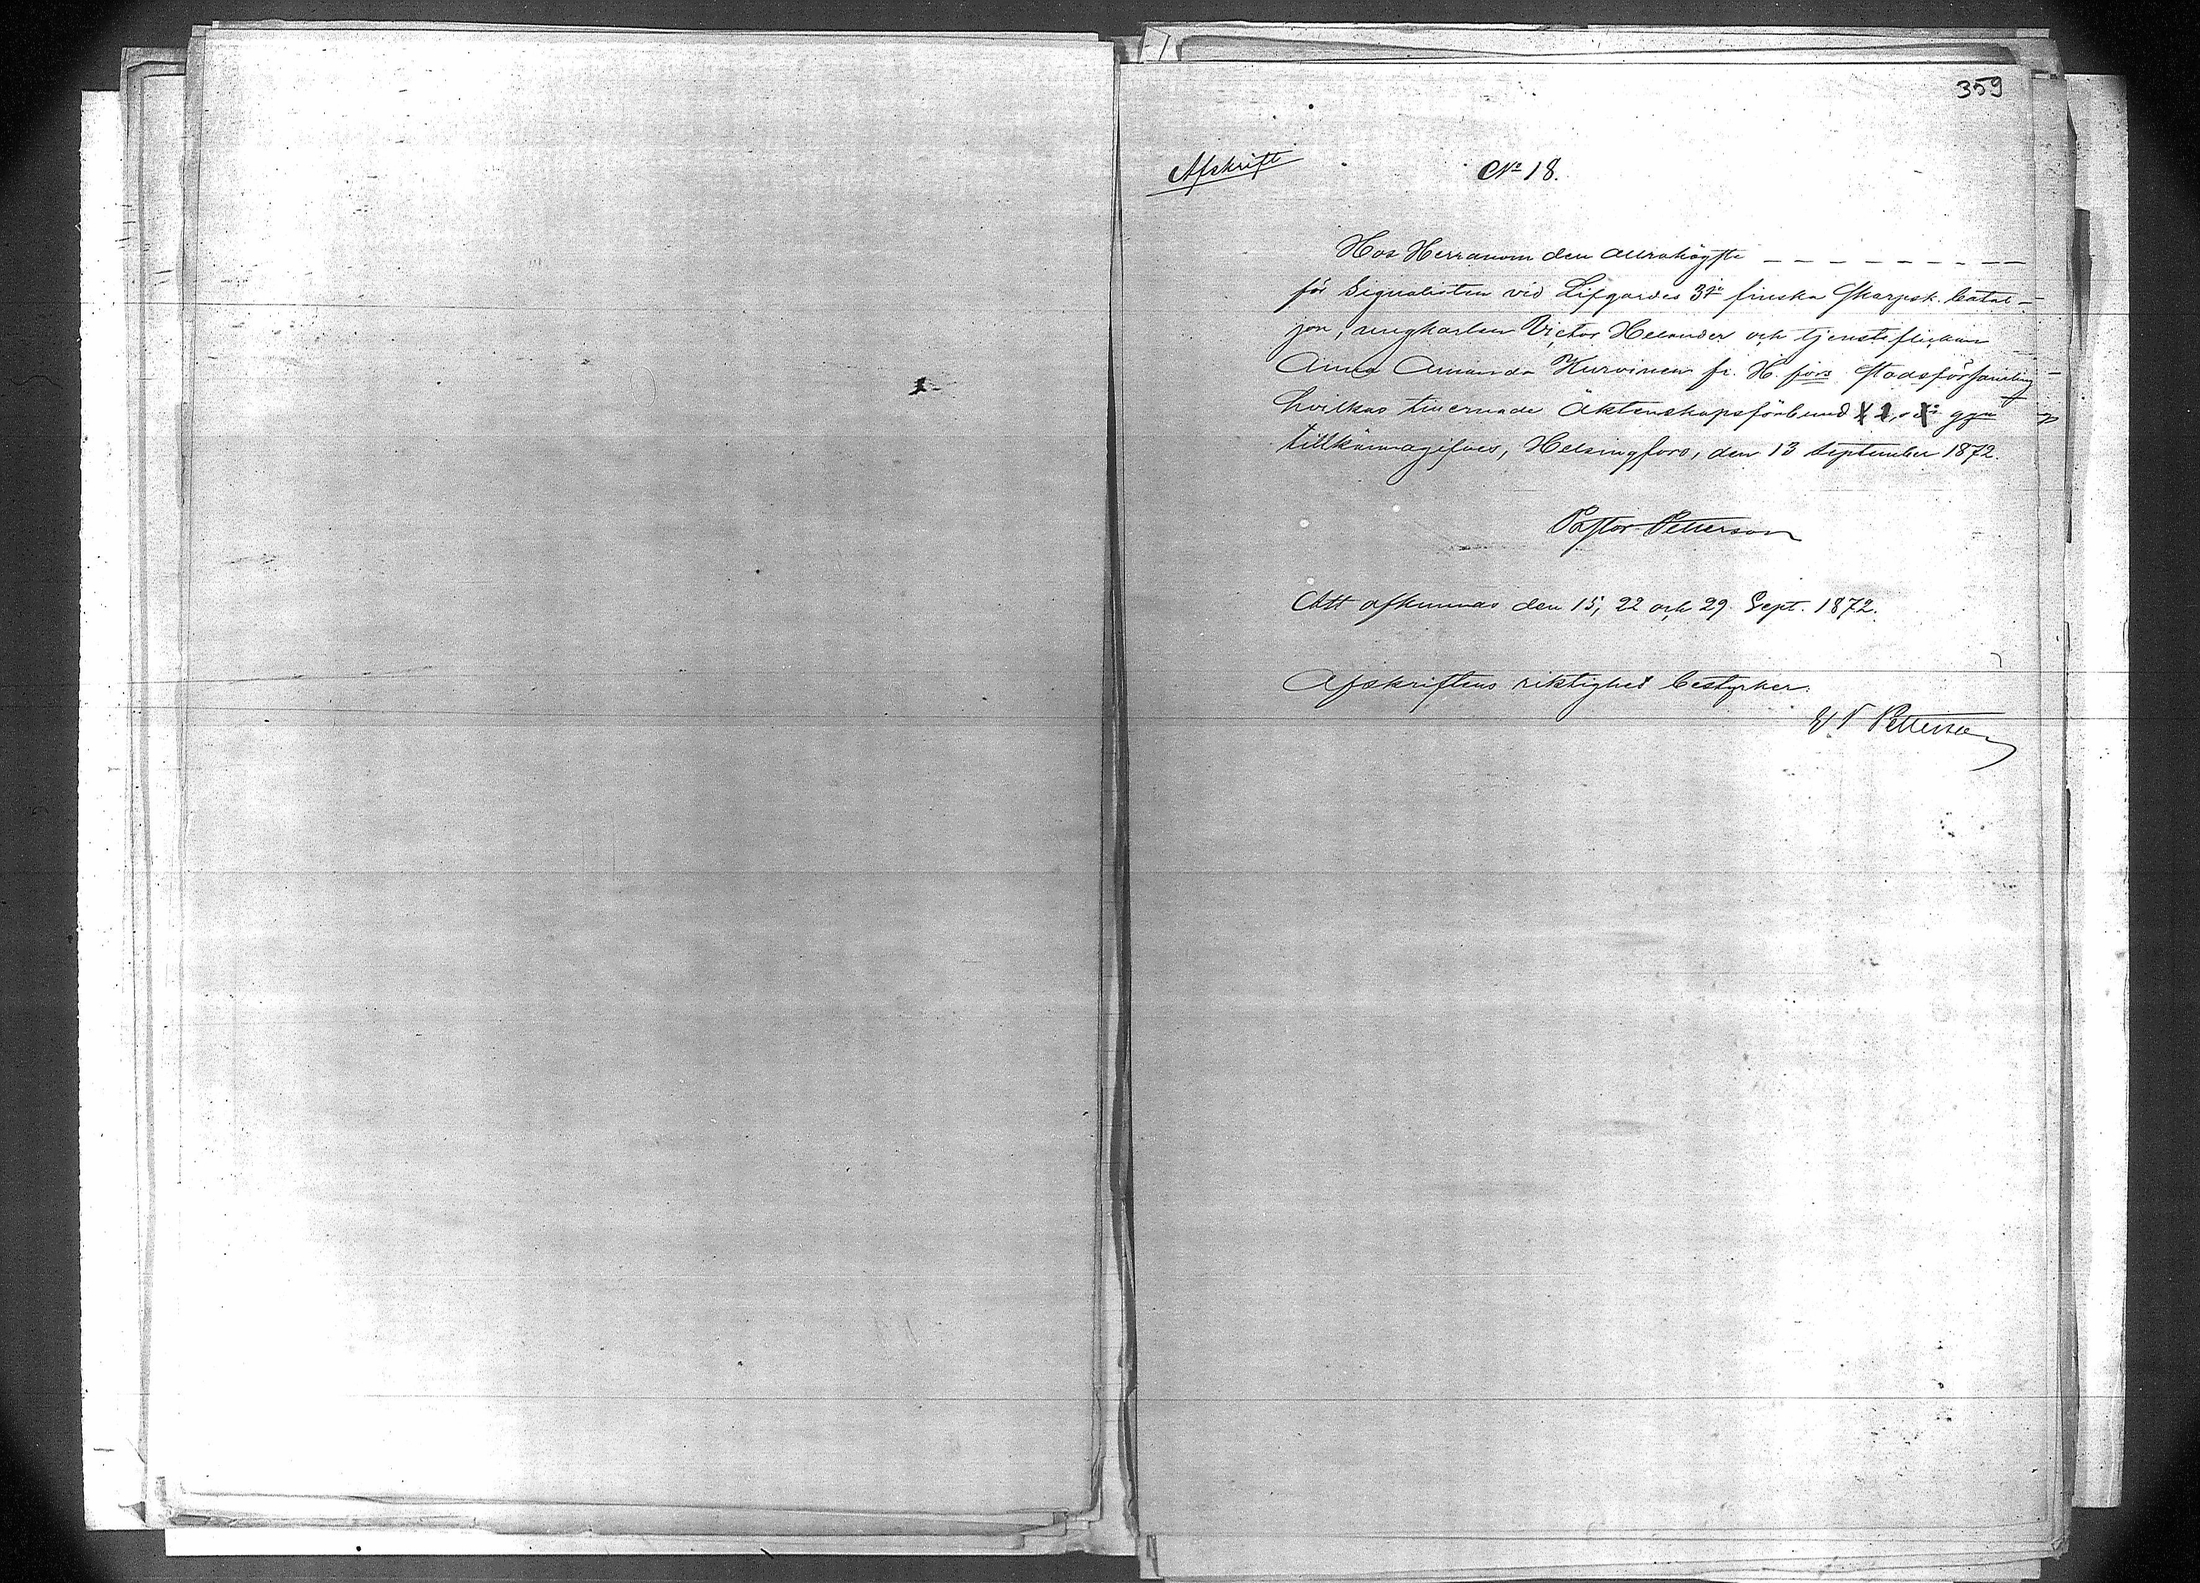 359
Afskrift
No 18.
Hos Herranom den allrahögste — — — — — — — —
för Signalisten vid Lifgardes 3je finska Skarpsk. batal-
jon, ungkarlen Victor Helander och tjensteflickan
Anna Amanda Kurvinen fr. H. fors Stadsförsamling
hvilkas timernade Äktenskapsförbund
tillkännagifves, Helsingfors, den 13 September 1872.
Pastor Petterson
Att afkunnas den 15, 22 och 29 Sept. 1872.
Afskriftens riktighet bestyrker:
Petterson